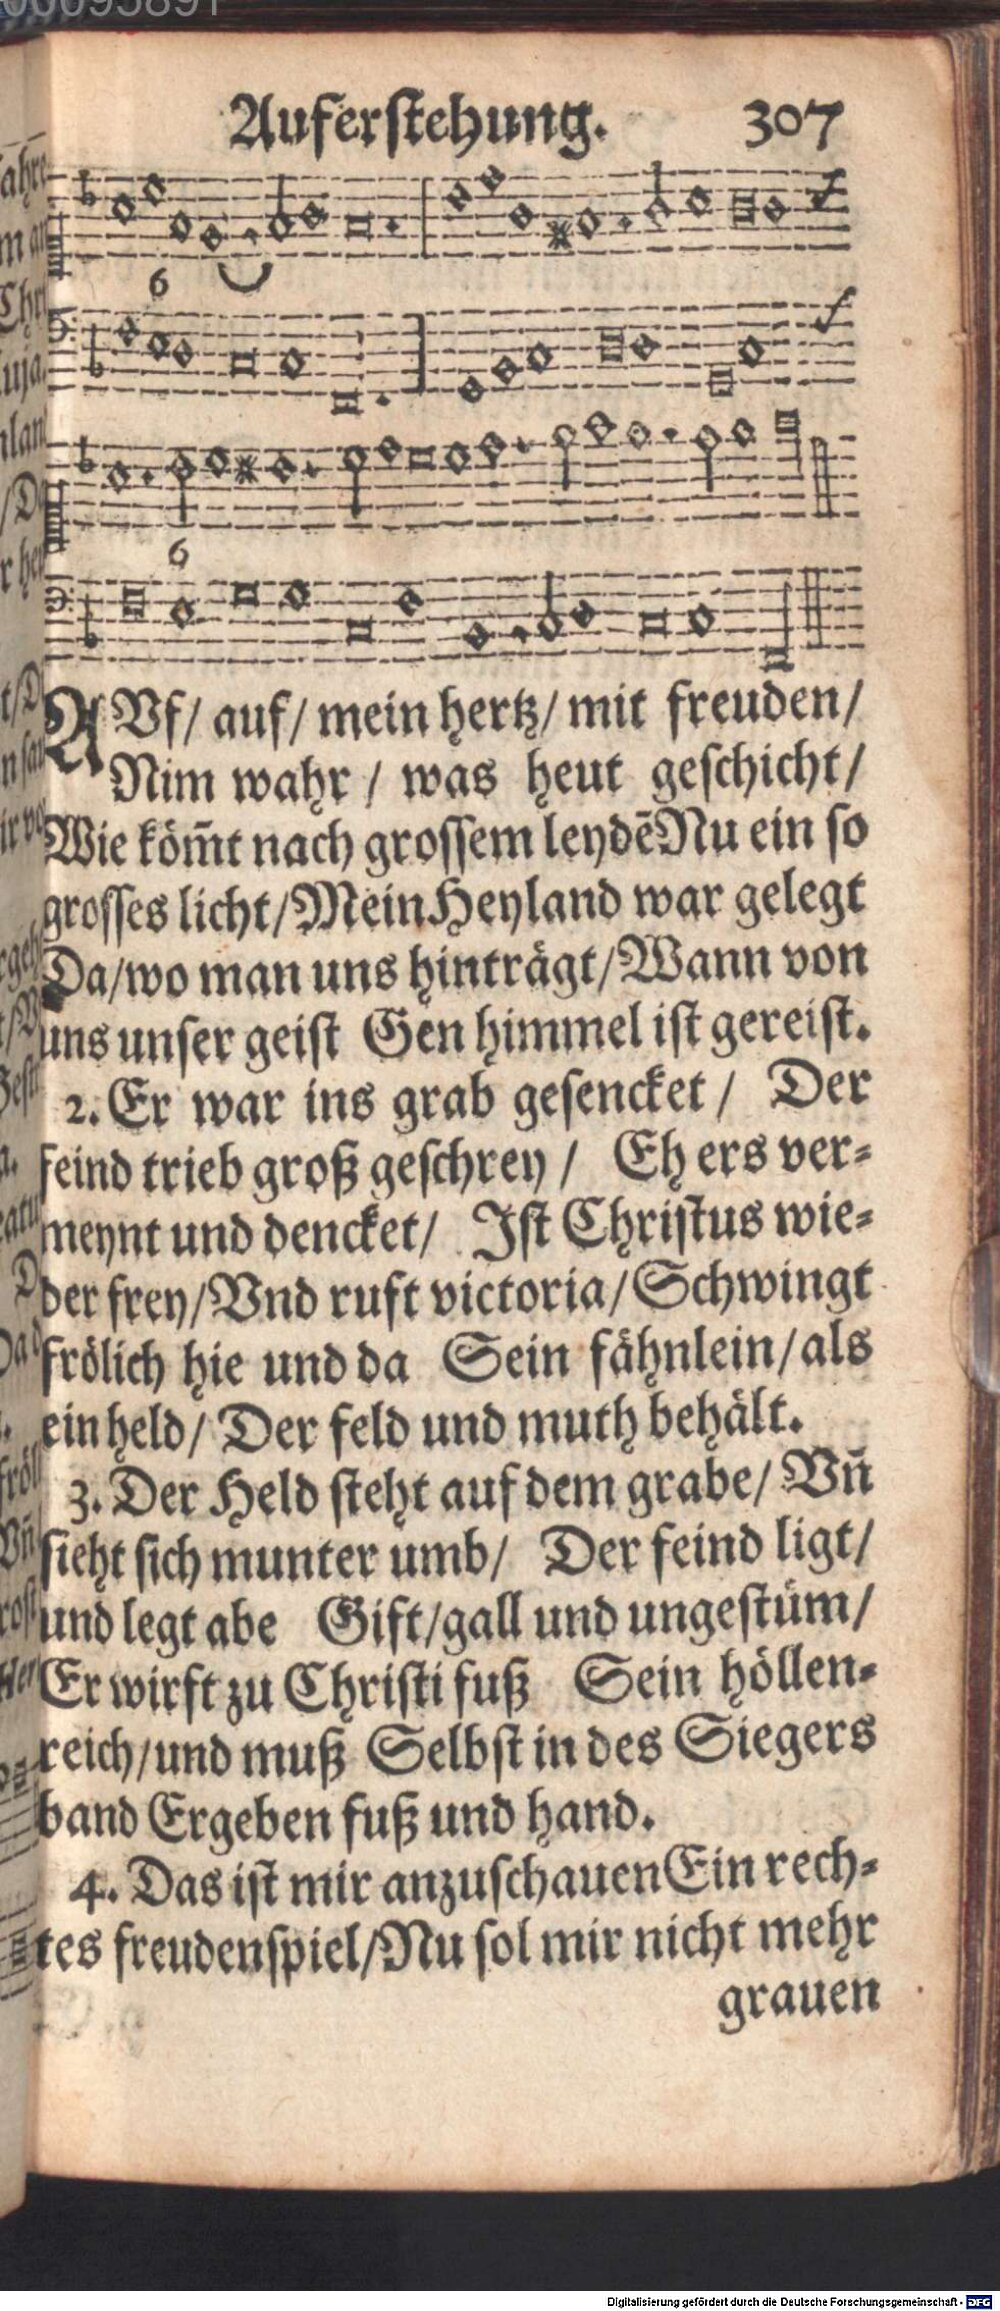 Auferstehung. 307
6
6
AVf/ auf/ mein hertz/ mit freuden/
Nim wahr / was heut geschicht/
Wie köm̃t nach grossem leydē Nu ein so
grosses licht/Mein Heyland war gelegt
Da/wo man uns hinträgt/Wann von
uns unser geist Gen himmel ist gereist.
2. Er war ins grab gesencket / Der
feind trieb groß geschrey / Eh ers ver-
meynt und dencket/ Ist Christus wie-
der frey/Vnd ruft victoria/Schwingt
frölich hie und da Sein fähnlein/als
ein held/ Der feld und muth behält.
3. Der Held steht auf dem grabe/ Vñ
sieht sich munter umb/ Der feind ligt/
und legt abe Gift/gall und ungestüm/
Er wirft zu Christi fuß Sein höllen-
reich/und muß Selbst in des Siegers
band Ergeben fuß und hand.
4. Das ist mir anzuschauen Ein rech-
tes freudenspiel/Nu sol mir nicht mehr
grauen
Digitalisierung gefördert durch die Deutsche Forschungsgemeinschaft - DFG